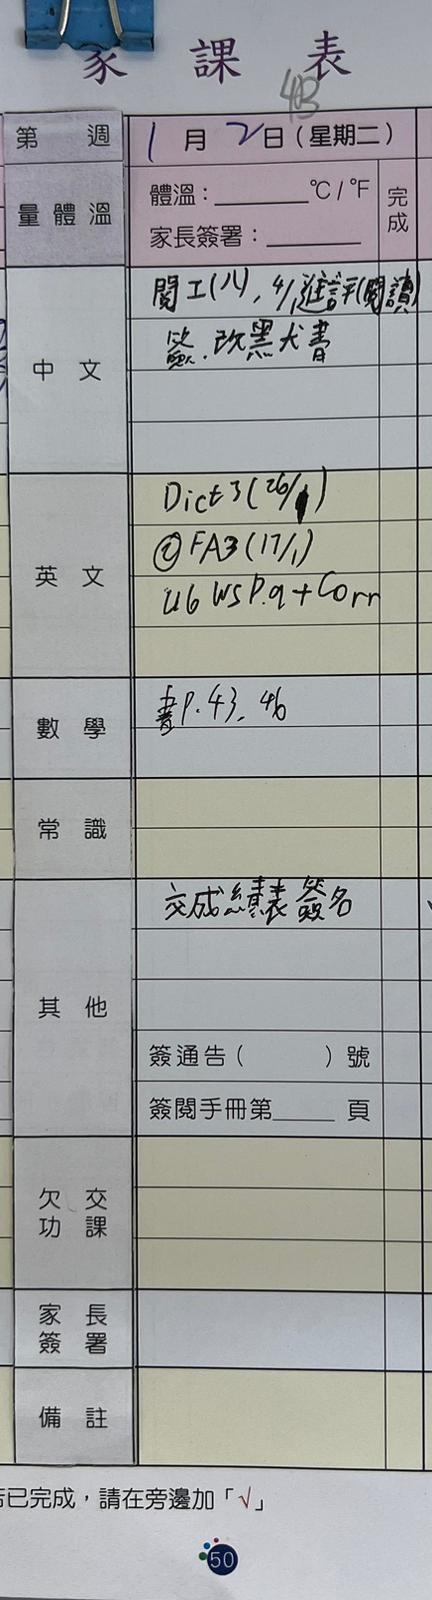 家課表
4B
第 週 1月2日(星期二)
量體溫 體溫：______°C/°F 完成
家長簽署：______
中文 閱工(八), 4/1進評(閱讀)
簽.改黑犬書
英文 Dict 3 (26/1)
② FA3 (17/1)
U6 WS P.9 + Corr
數學 書P.43, 46
常識
其他 交成績表簽名
簽通告( )號
簽閱手冊第____頁
欠交功課
家長簽署
備註
已完成，請在旁邊加「√」
50